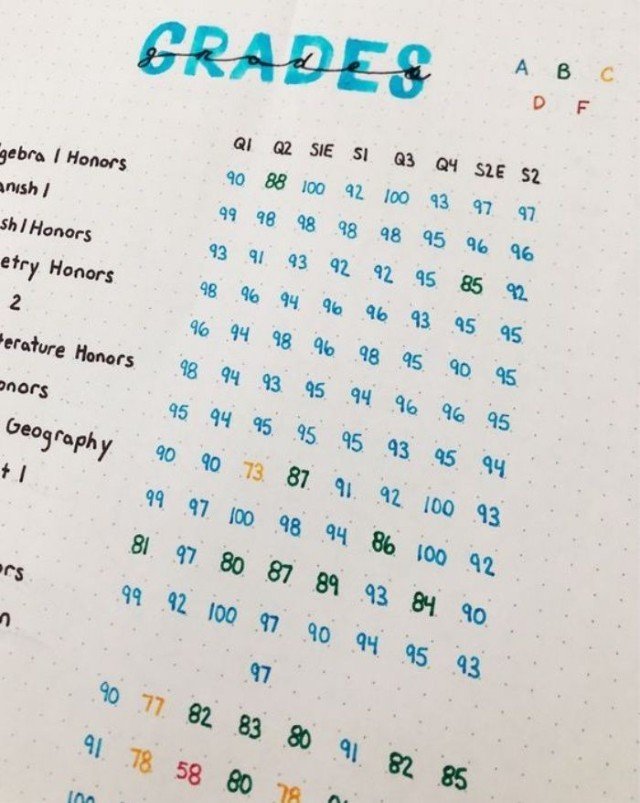 GRADES
grades
A B C
D F
Q1 Q2 S1E S1 Q3 Q4 S2E S2
gebra 1 Honors 90 88 100 92 100 93 97 97
anish 1 99 98 98 98 98 95 96 96
sh 1 Honors 93 91 93 92 92 95 85 92
etry Honors 98 96 94 96 96 93 95 95
2 96 94 98 96 98 95 90 95
erature Honors 98 94 93 95 94 96 96 95
onors 95 94 95 95 95 93 95 94
Geography 90 90 73 87 91 92 100 93
t 1 99 97 100 98 94 86 100 92
81 97 80 87 89 93 84 90
ors 99 92 100 97 90 94 95 93
n 97
90 77 82 83 80 91 82 85
91 78 58 80 78
100